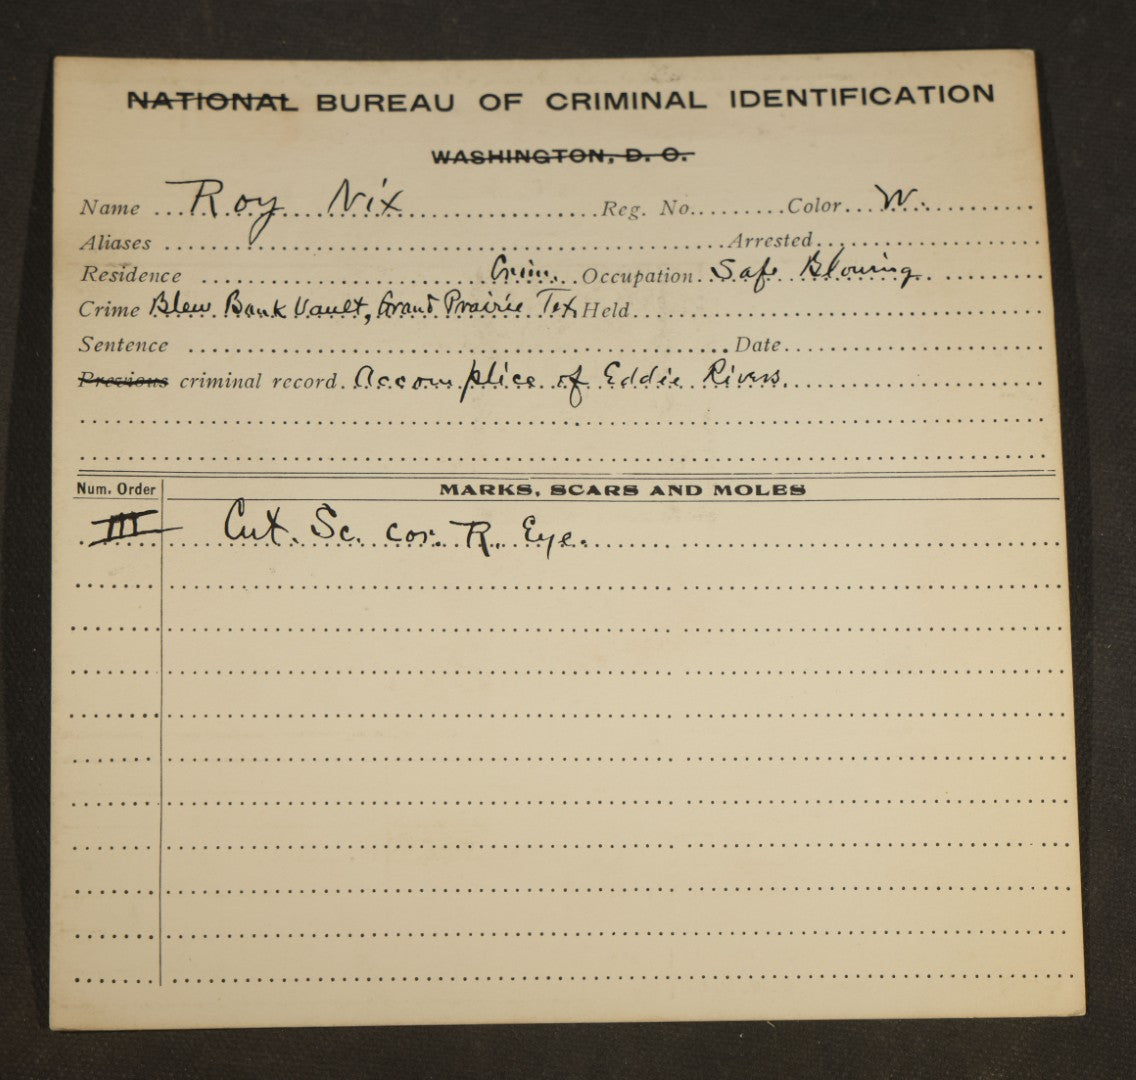 NATIONAL BUREAU OF CRIMINAL IDENTIFICATION
WASHINGTON, D. C.
Name Roy Nix Reg. No. Color W.
Aliases Arrested
Residence Crim. Occupation Safe Blowing
Crime Blew Bank Vault, Grand Prairie Tex Held
Sentence Date
Previous criminal record. Accomplice of Eddie Rivers
Num. Order MARKS, SCARS AND MOLES
III Cut. Sc. cor. R. Eye.